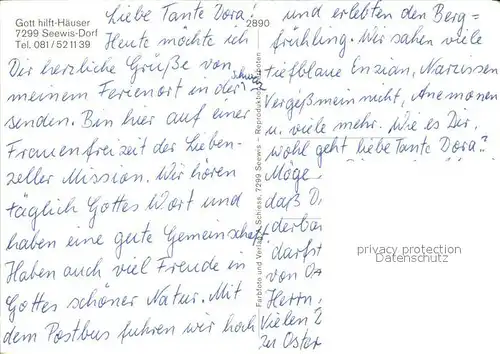 Gott hilft-Häuser
7299 Seewis-Dorf
Tel. 081/521139
2890
Liebe Tante Dora!
Heute möchte ich
Dir herzliche Grüße von
meinem Ferienort in der Schweiz
senden. Bin hier auf einer
Frauenfreizeit der Lieben-
zeller Mission. Wir hören
täglich Gottes Wort und
haben eine gute Gemeinschaft.
Haben auch viel Freude in
Gottes schöner Natur. Mit
dem Postbus fuhren wir hoch
Farbfoto und Verlag Schiess, 7299 Seewis — Reproduktion
und erlebten den Berg-
frühling. Wir sahen viele
tiefblaue Enzian, Narzissen
Vergißmeinnicht, Anemonen
u. viele mehr. Wie es Dir,
wohl geht liebe Tante Dora?
Möge
daß D
derbar
darfst
von
Herrn,
Vielen
zu Oster
privacy protection
Datenschutz